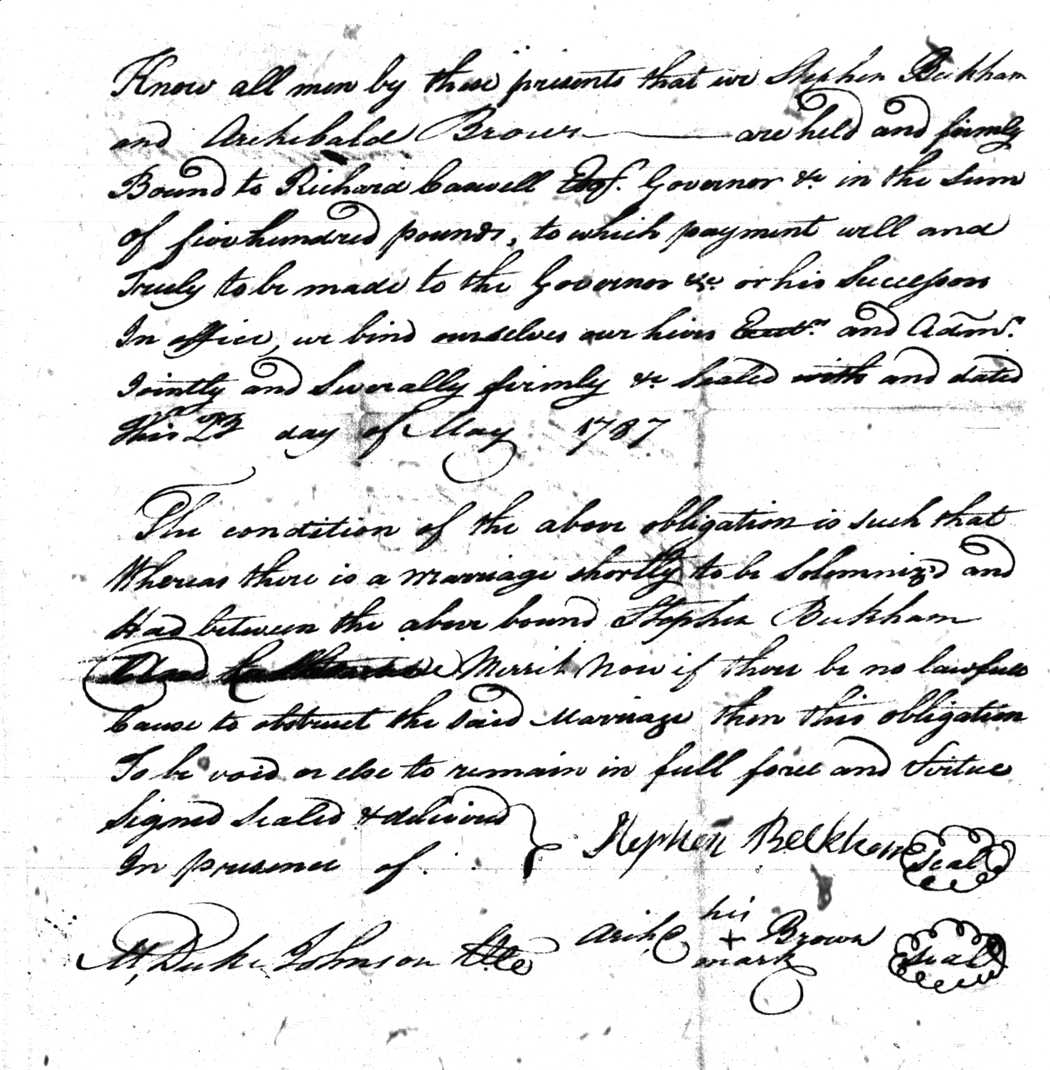 Know all men by these presents that we Stephen Beckham
and Archibald Brown are held and firmly
Bound to Richard Caswell Esqr. Governor &c in the Sum
of five hundred pounds, to which payment well and
Truly to be made to the Governor &c. or his Successors
In office, we bind ourselves our heirs Exrs. and Admrs.
Jointly and Severally firmly &c Sealed with and dated
This 23 day of May 1787
The condition of the above obligation is such that
Whereas there is a marriage shortly to be Solemniz'd and
Had between the above bound Stephen Beckham
and Merrit Now if there be no lawfull
Cause to obstruct the Said Marriage then this obligation
To be void or else to remain in full force and Virtue
Signed Sealed & delivered
In presence of
Stephen Beckham Seal
his
Arch. + Brown Seal
mark
M, Duke Johnson